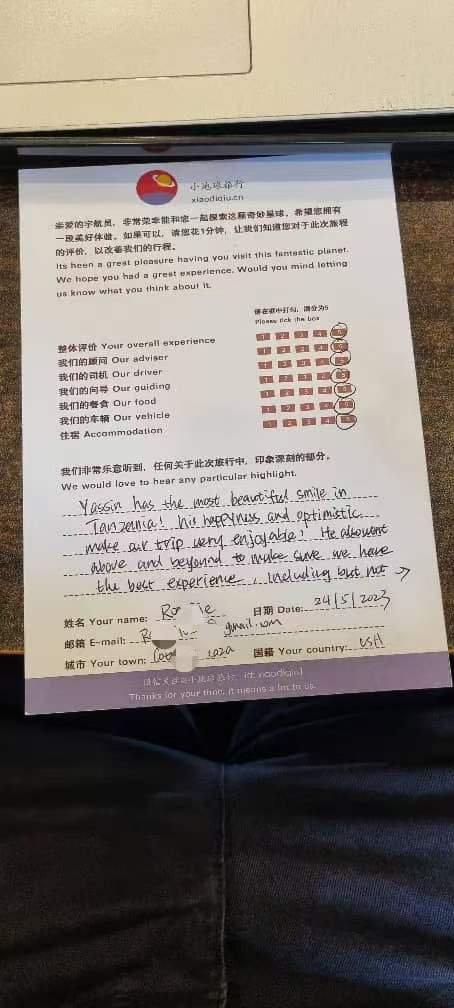 小地球旅行
xiaodiqiu.cn
亲爱的宇航员，非常荣幸能和您一起探索这颗奇妙星球，希望您拥有
一段美好体验。如果可以，请您花1分钟，让我们知道您对于此次旅程
的评价，以改善我们的行程。
Its heen a great pleasure having you visit this fantastic planet.
We hope you had a great experience. Would you mind letting
us know what you think about it.
请在框中打勾，满分为5
Please tick the box
整体评价 Your overall experience 1 2 3 4 5
我们的顾问 Our adviser 1 2 3 4 5
我们的司机 Our driver 1 2 3 4 5
我们的向导 Our guiding 1 2 3 4 5
我们的餐食 Our food 1 2 3 4 5
我们的车辆 Our vehicle 1 2 3 4 5
住宿 Accommodation 1 2 3 4 5
我们非常乐意听到，任何关于此次旅行中，印象深刻的部分。
We would love to hear any particular highlight.
Yassin has the most beautiful smile in
Tanzania! his happyness and optimistic
make our trip very enjoyable! He also went
above and beyond to make sure we have
the best experience. Including but not →
姓名 Your name: 日期 Date: 24/5/2023
邮箱 E-mail: gmail.com
城市 Your town: 国籍 Your country: USA
id: xiaodiqiu1
Thanks for your time, it means a lot to us.